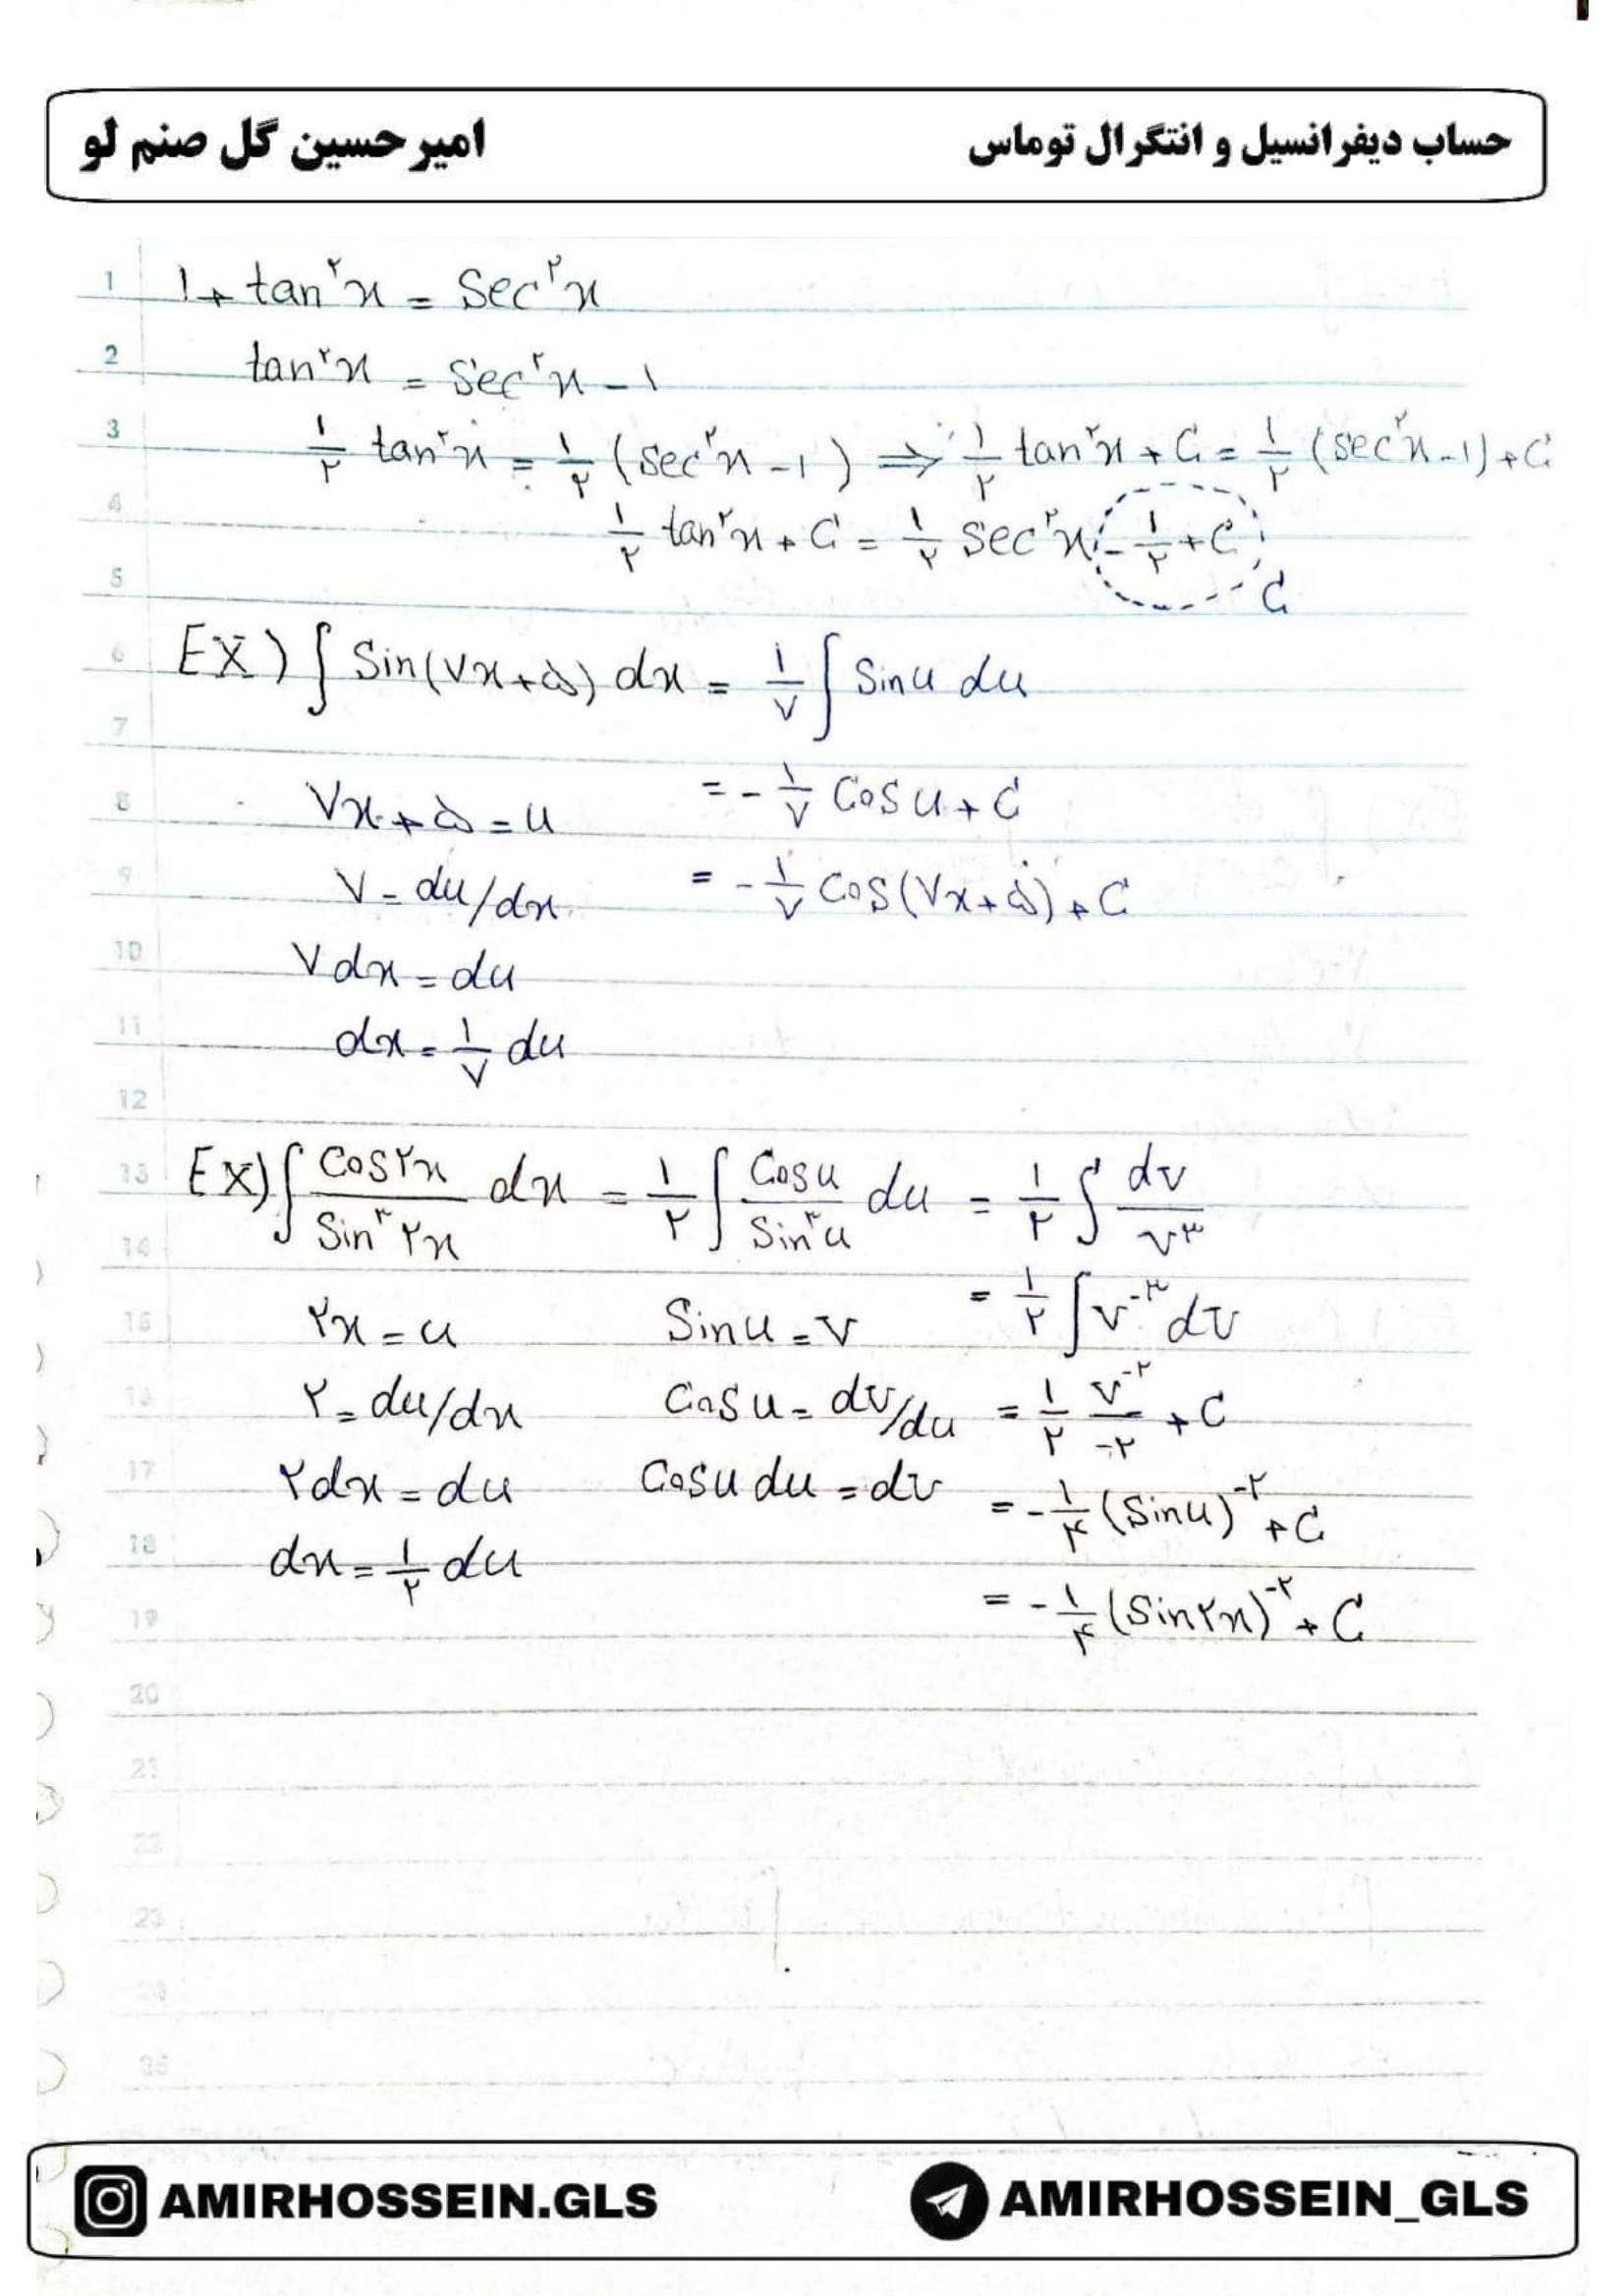 حساب دیفرانسیل و انتگرال توماس
امیرحسین گل صنم لو
1 ۱+tan²x = Sec²x
2 tan²x = Sec²x − ۱
3 ۱/۲ tan²x = ۱/۲ (Sec²x − ۱) ⇒ ۱/۲ tan²x + C = ۱/۲ (Sec²x − ۱) + C
4 ۱/۲ tan²x + C = ۱/۲ Sec²x − ۱/۲ + C
5 C
6 EX) ∫ Sin(۷x+۵) dx = ۱/۷ ∫ Sinu du
7
8 ۷x+۵ = u = −۱/۷ Cosu + C
9 ۷ = du/dx = −۱/۷ Cos(۷x+۵) + C
10 ۷dx = du
11 dx = ۱/۷ du
12
13 EX) ∫ Cos۲x / Sin³۲x dx = ۱/۲ ∫ Cosu / Sin³u du = ۱/۲ ∫ dv / v³
14 = ۱/۲ ∫ v⁻³ dv
15 ۲x = u Sinu = v
16 ۲ = du/dx Cosu = dv/du = ۱/۲ v⁻²/−۲ + C
17 ۲dx = du Cosu du = dv = −۱/۴ (Sinu)⁻² + C
18 dx = ۱/۲ du
19 = −۱/۴ (Sin۲x)⁻² + C
20
21
22
23
AMIRHOSSEIN.GLS
AMIRHOSSEIN_GLS